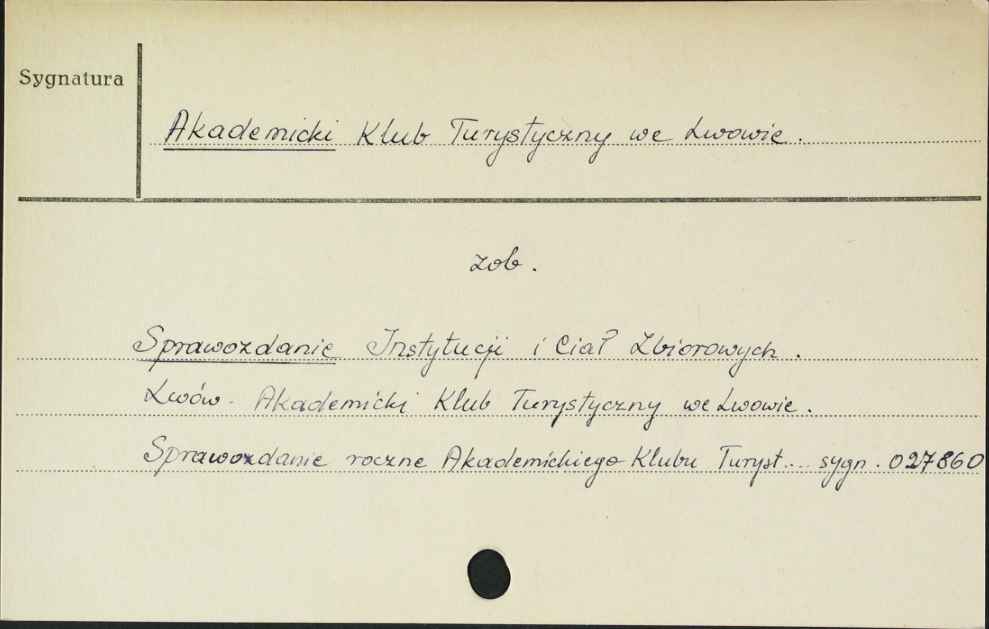 Sygnatura
Akademicki Klub Turystyczny we Lwowie.
zob.
Sprawozdanie Instytucji i Ciał Zbiorowych.
Lwów. Akademicki Klub Turystyczny we Lwowie.
Sprawozdanie roczne Akademickiego Klubu Turyst... sygn. 027860